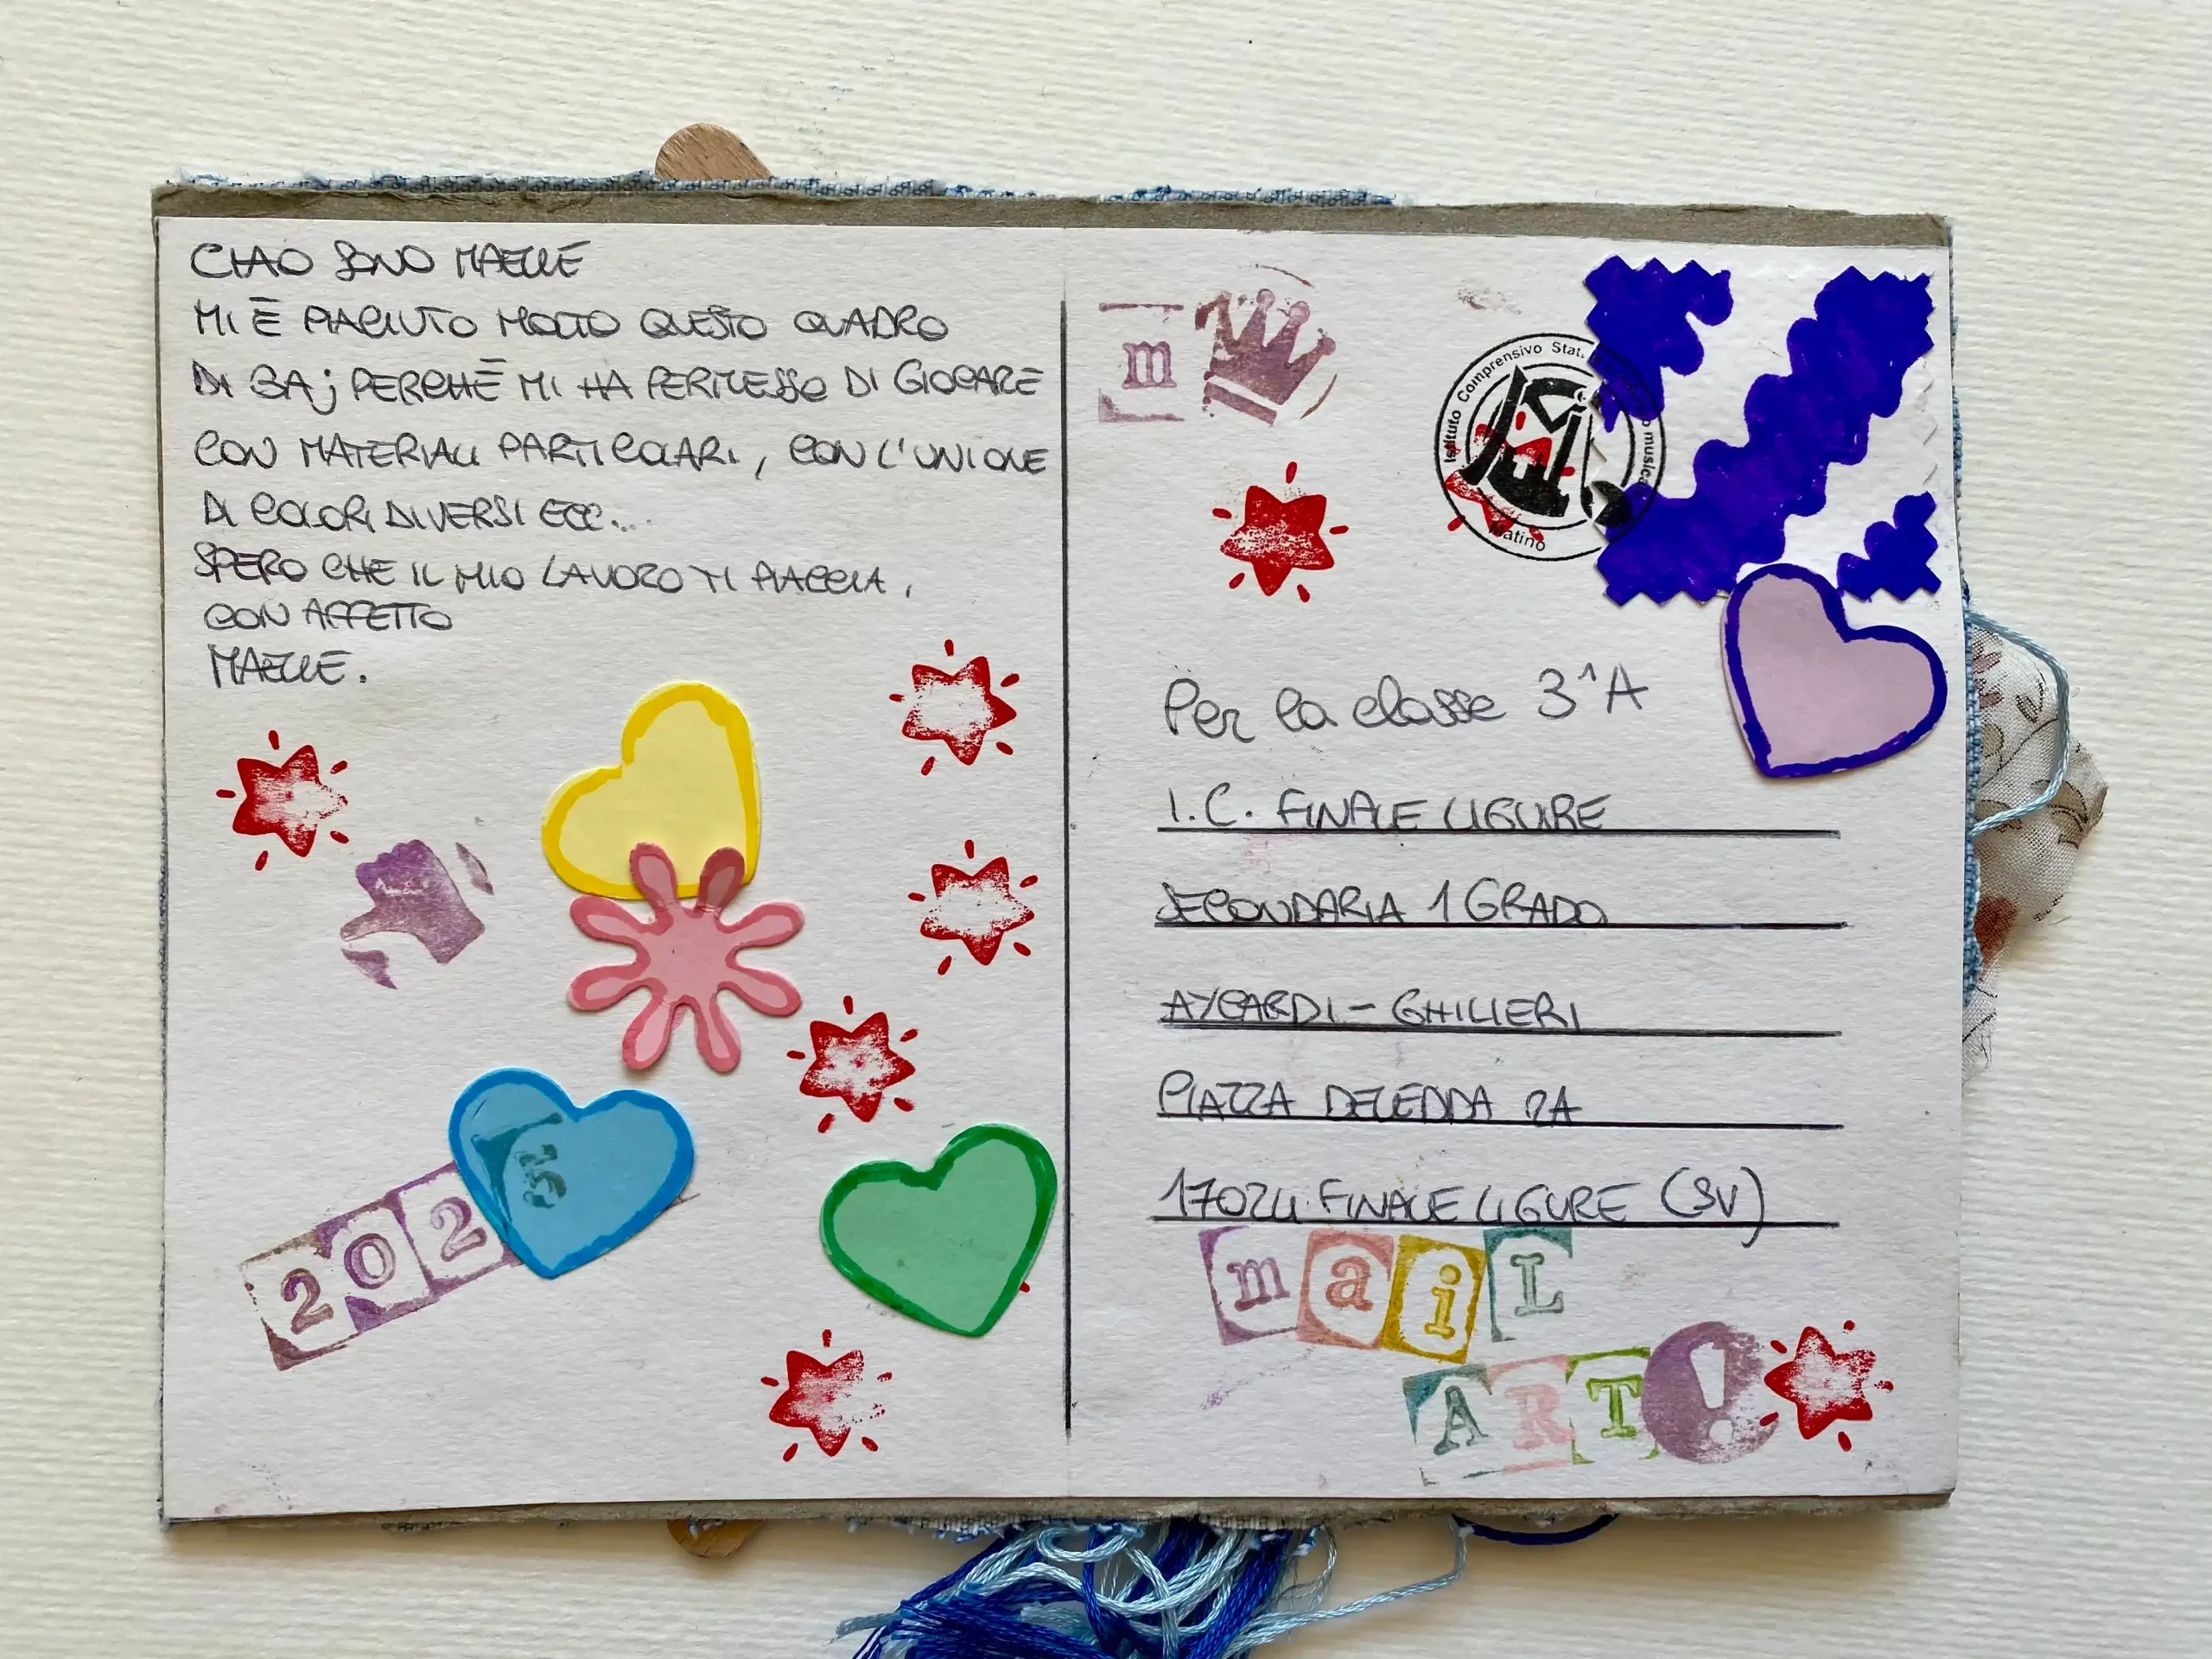 CIAO SONO MAELLE
MI È PIACIUTO MOLTO QUESTO QUADRO
DI BAj PERCHÈ MI HA PERMESSO DI GIOCARE
CON MATERIALI PARTICOLARI, CON L'UNIONE
DI COLORI DIVERSI ECC...
SPERO CHE IL MIO LAVORO TI PIACCIA,
CON AFFETTO
MAELLE.
2025
m
Istituto Comprensivo Stat
musica
Matino
Per la classe 3^A
I.C. FINALE LIGURE
SECONDARIA 1 GRADO
AYCARDI - GHILIERI
PIAZZA DELEDDA 2A
17024 FINALE LIGURE (SV)
maiL
ART!